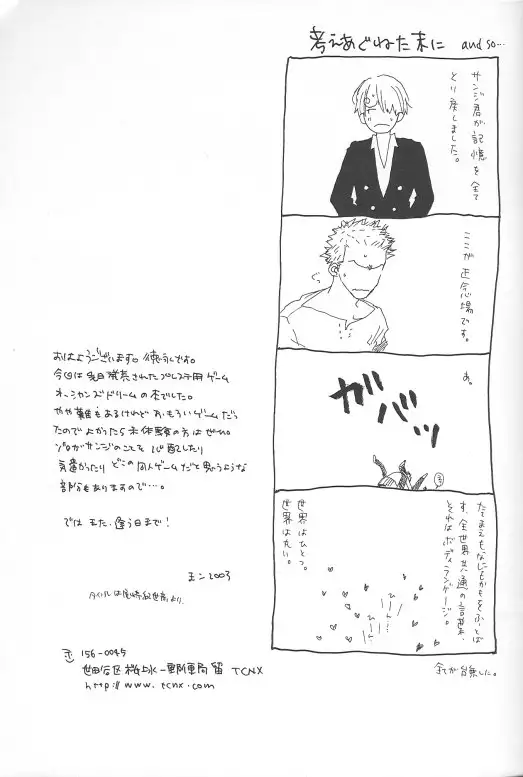 考えあぐねた末に and so…
サンジ君が記憶を全て
とり戻しました。
ここが正念場です。
あ。
ガバッ
たてまえもなにもかもをふっとば
す、全世界共通の言葉、
それはボディランゲージ。
世界はひとつ。
世界は丸い。
全てが台無した。
おはようございます。
今回は先日発売されたプレステ用ゲーム
オーシャンズドリームの本でした。
やや難もあるけれどおもろいゲームだっ
たのでよかったら未体験の方はぜひ。
ゾロがサンジのことを心配したり
気遣ったりどこの同人ゲームだと思うような
部分もありますので…。
ではまた、逢う日まで!
2003
タイトルは尾崎
156-0045
世田谷区桜上水一郵便局留 TCNX
http://www.tcnx.com